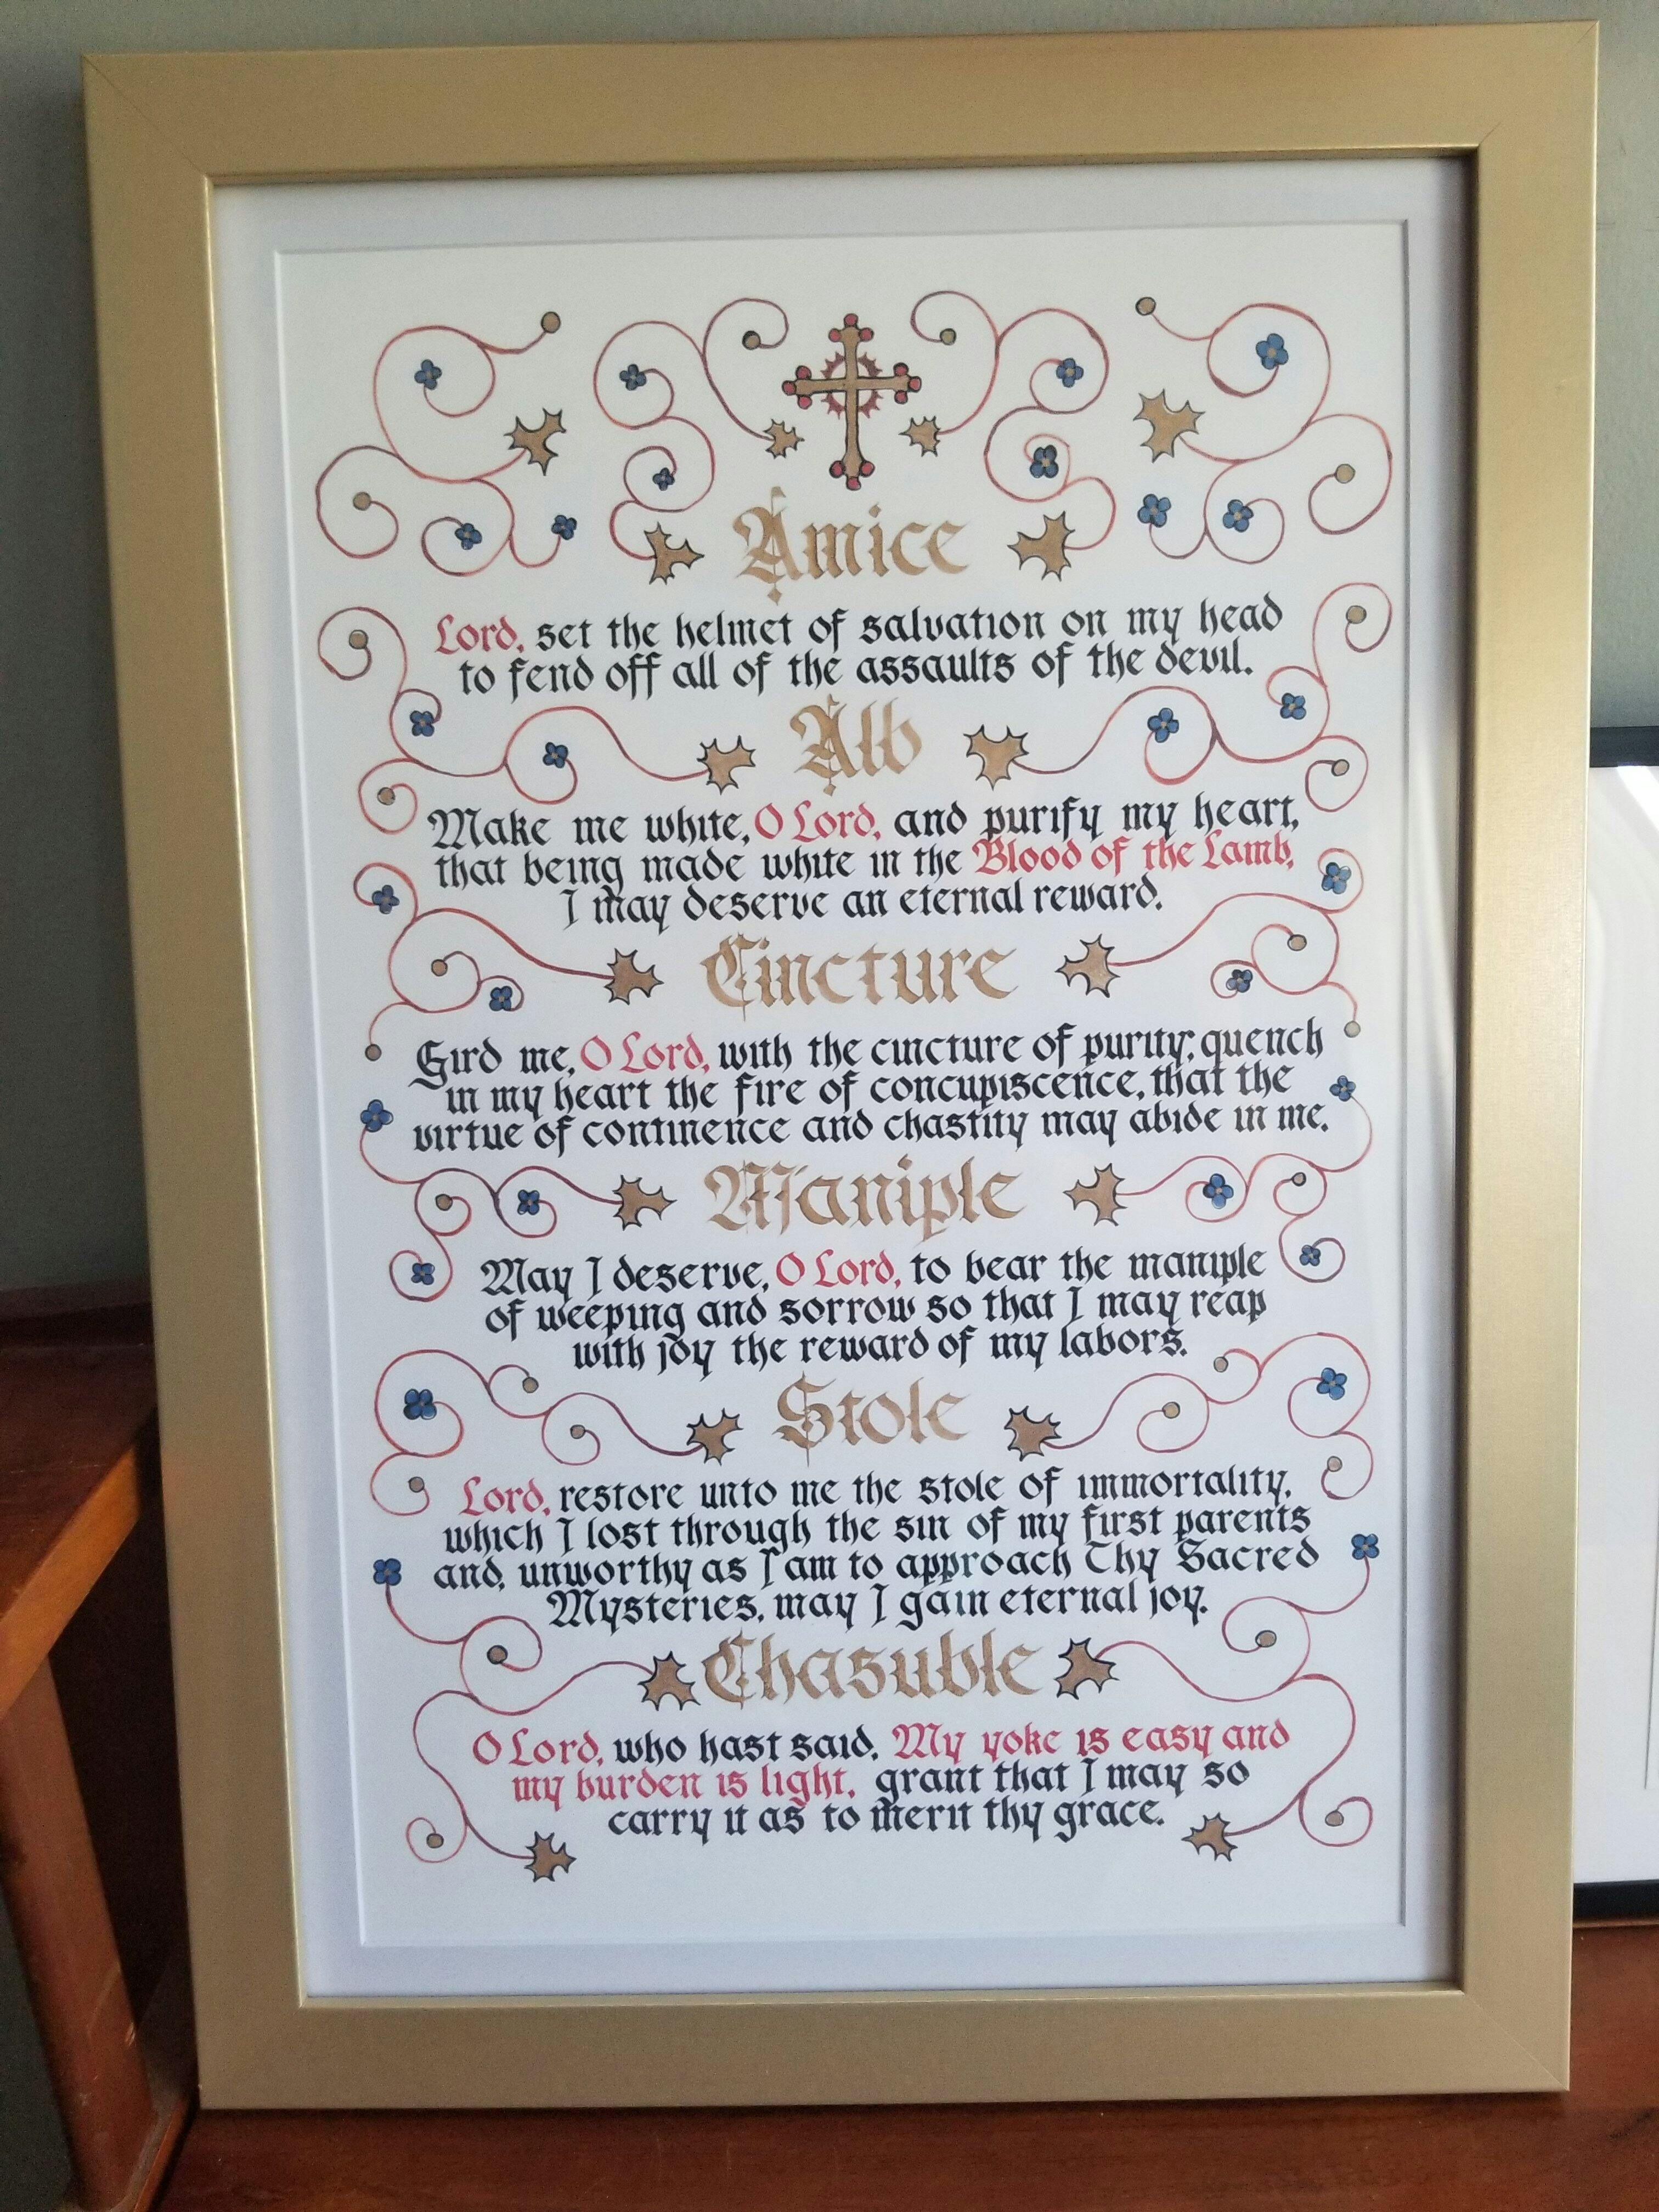 Amice
Lord, set the helmet of salvation on my head
to fend off all of the assaults of the devil.
Alb
Make me white, O Lord, and purify my heart,
that being made white in the Blood of the Lamb,
I may deserve an eternal reward.
Cincture
Gird me, O Lord, with the cincture of purity; quench
in my heart the fire of concupiscence, that the
virtue of continence and chastity may abide in me.
Maniple
May I deserve, O Lord, to bear the maniple
of weeping and sorrow so that I may reap
with joy the reward of my labors.
Stole
Lord, restore unto me the stole of immortality,
which I lost through the sin of my first parents
and, unworthy as I am to approach Thy Sacred
Mysteries, may I gain eternal joy.
Chasuble
O Lord, who hast said, My yoke is easy and
my burden is light, grant that I may so
carry it as to merit thy grace.